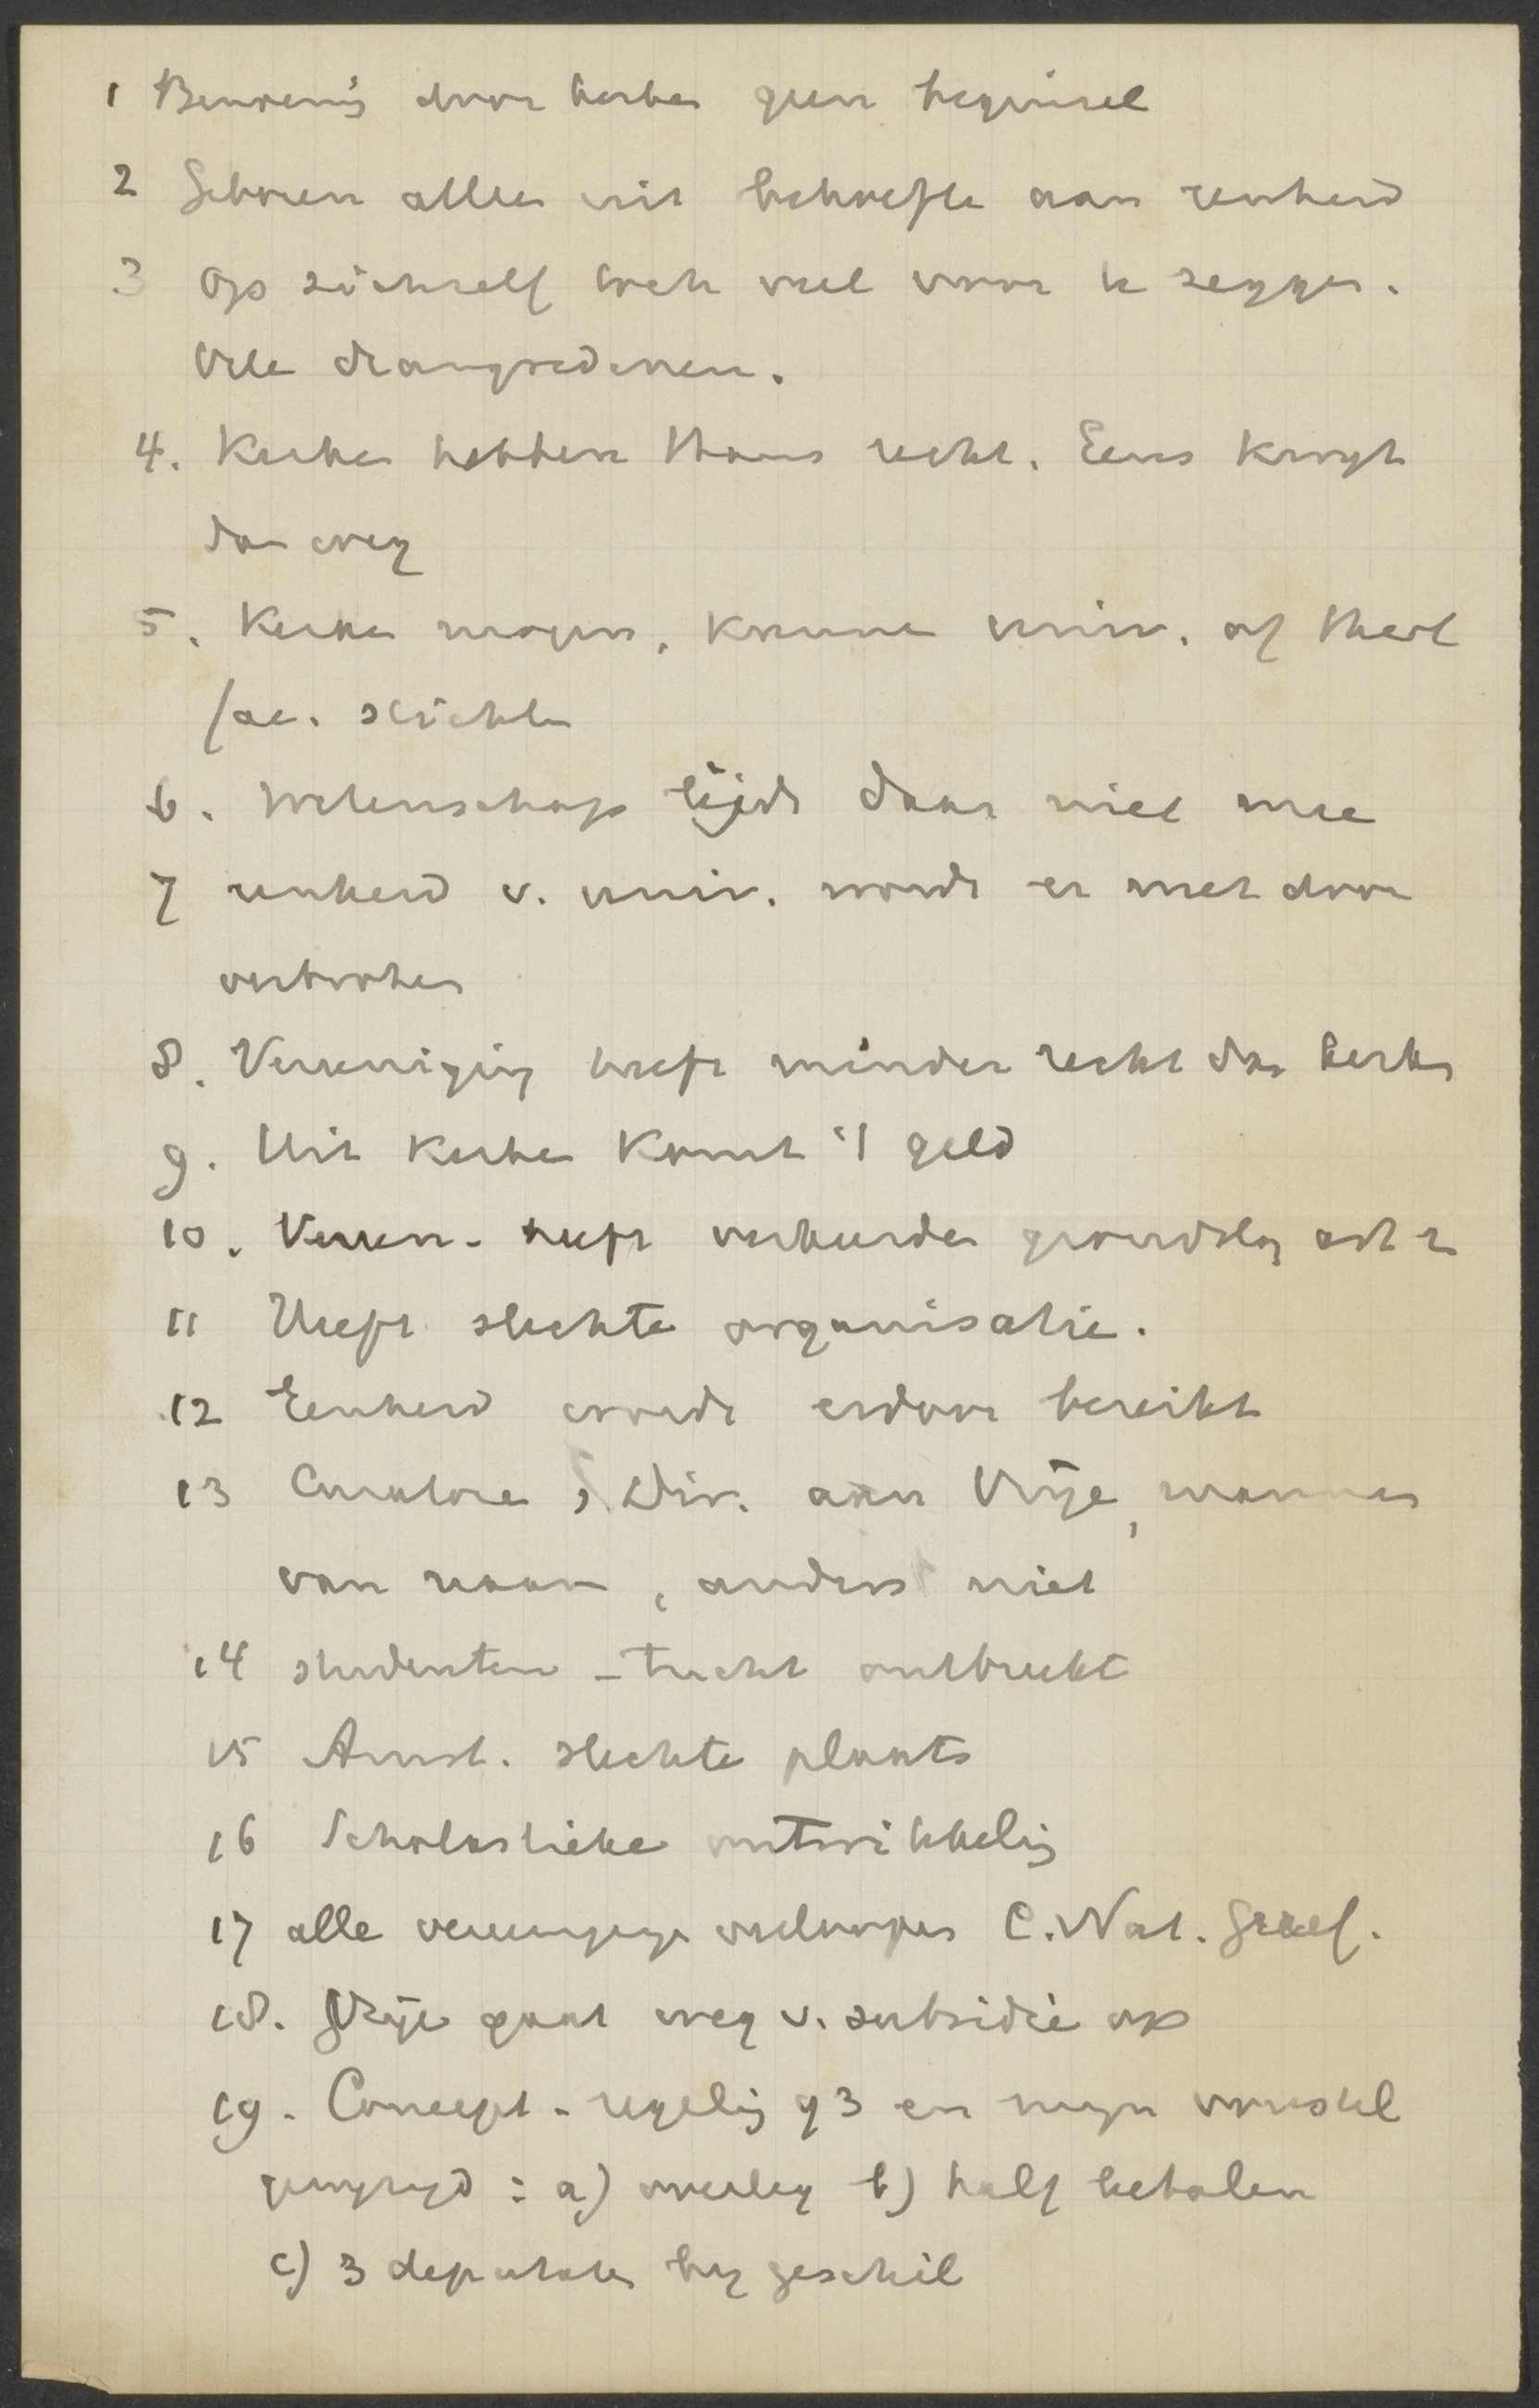 1 Benoemg door kerken geen beginsel
2 Geboren alleen uit behoefte aan eenheid
3 Op zichzelf toch veel voor te zeggen.
Vele drangredenen.
4. Kerken hebben thans recht. Eens krijgt
dan weg
5. Kerken mogen, kunnen univ. of theol
fac. stichten
6. Wetenschap lijdt daar niet mee
7 eenheid v. univ. wordt er niet door
verbroken
8. Vereeniging heeft minder recht dan kerken
9. Uit kerken komt 't geld
10. Vereen. heeft verkeerden grondslag art 2
11 Heeft slechte organisatie.
12 Eenheid wordt erdoor bereikt
13 Curatoren, Dir. aan Vrije, mannen
van naam, anders niet
14 studenten-tucht ontbreekt
15 Amst. slechte plaats
16 Scholastieke ontwikkelig
17 alle vereenigingen C. Nat. Geref.
18. Vrije gaat weg v. subsidie op
19. Concept-regelig g3 en mijn voorstel
gewijzigd: a) overleg b) half betalen
c) 3 deputaten bij geschil